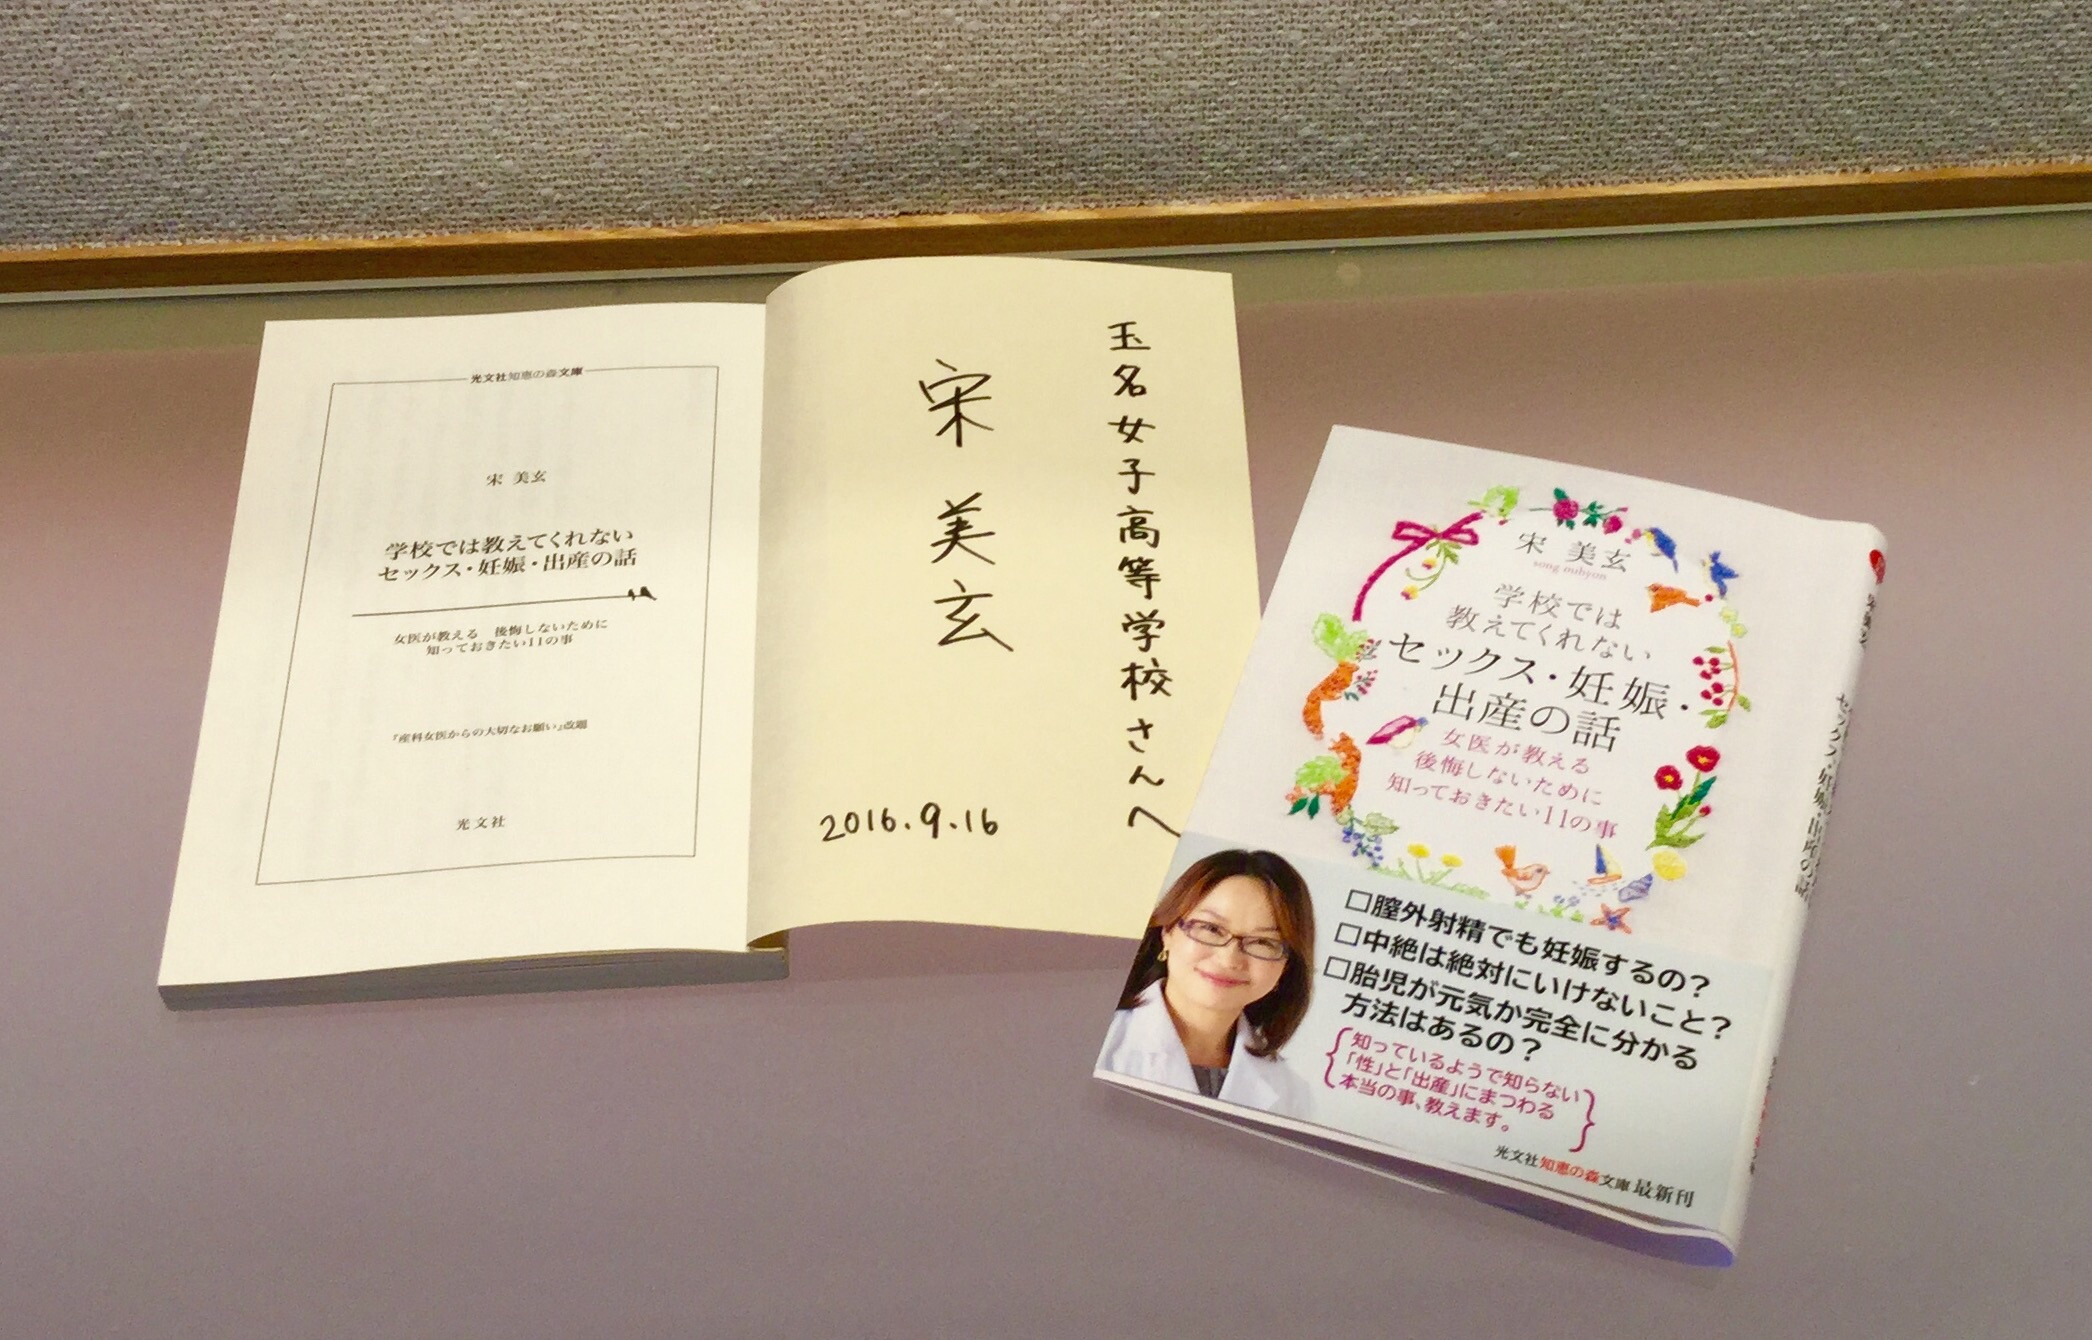 光文社知恵の森文庫
宋 美玄
学校では教えてくれない
セックス・妊娠・出産の話
女医が教える 後悔しないために
知っておきたい11の事
『産科女医からの大切なお願い』改題
光文社
玉名女子高等学校さんへ
宋 美玄
2016.9.16
宋 美玄
song mihyon
学校では
教えてくれない
セックス・妊娠・
出産の話
女医が教える
後悔しないために
知っておきたい11の事
□膣外射精でも妊娠するの?
□中絶は絶対にいけないこと?
□胎児が元気か完全に分かる
方法はあるの?
知っているようで知らない
「性」と「出産」にまつわる
本当の事、教えます。
光文社知恵の森文庫 最新刊